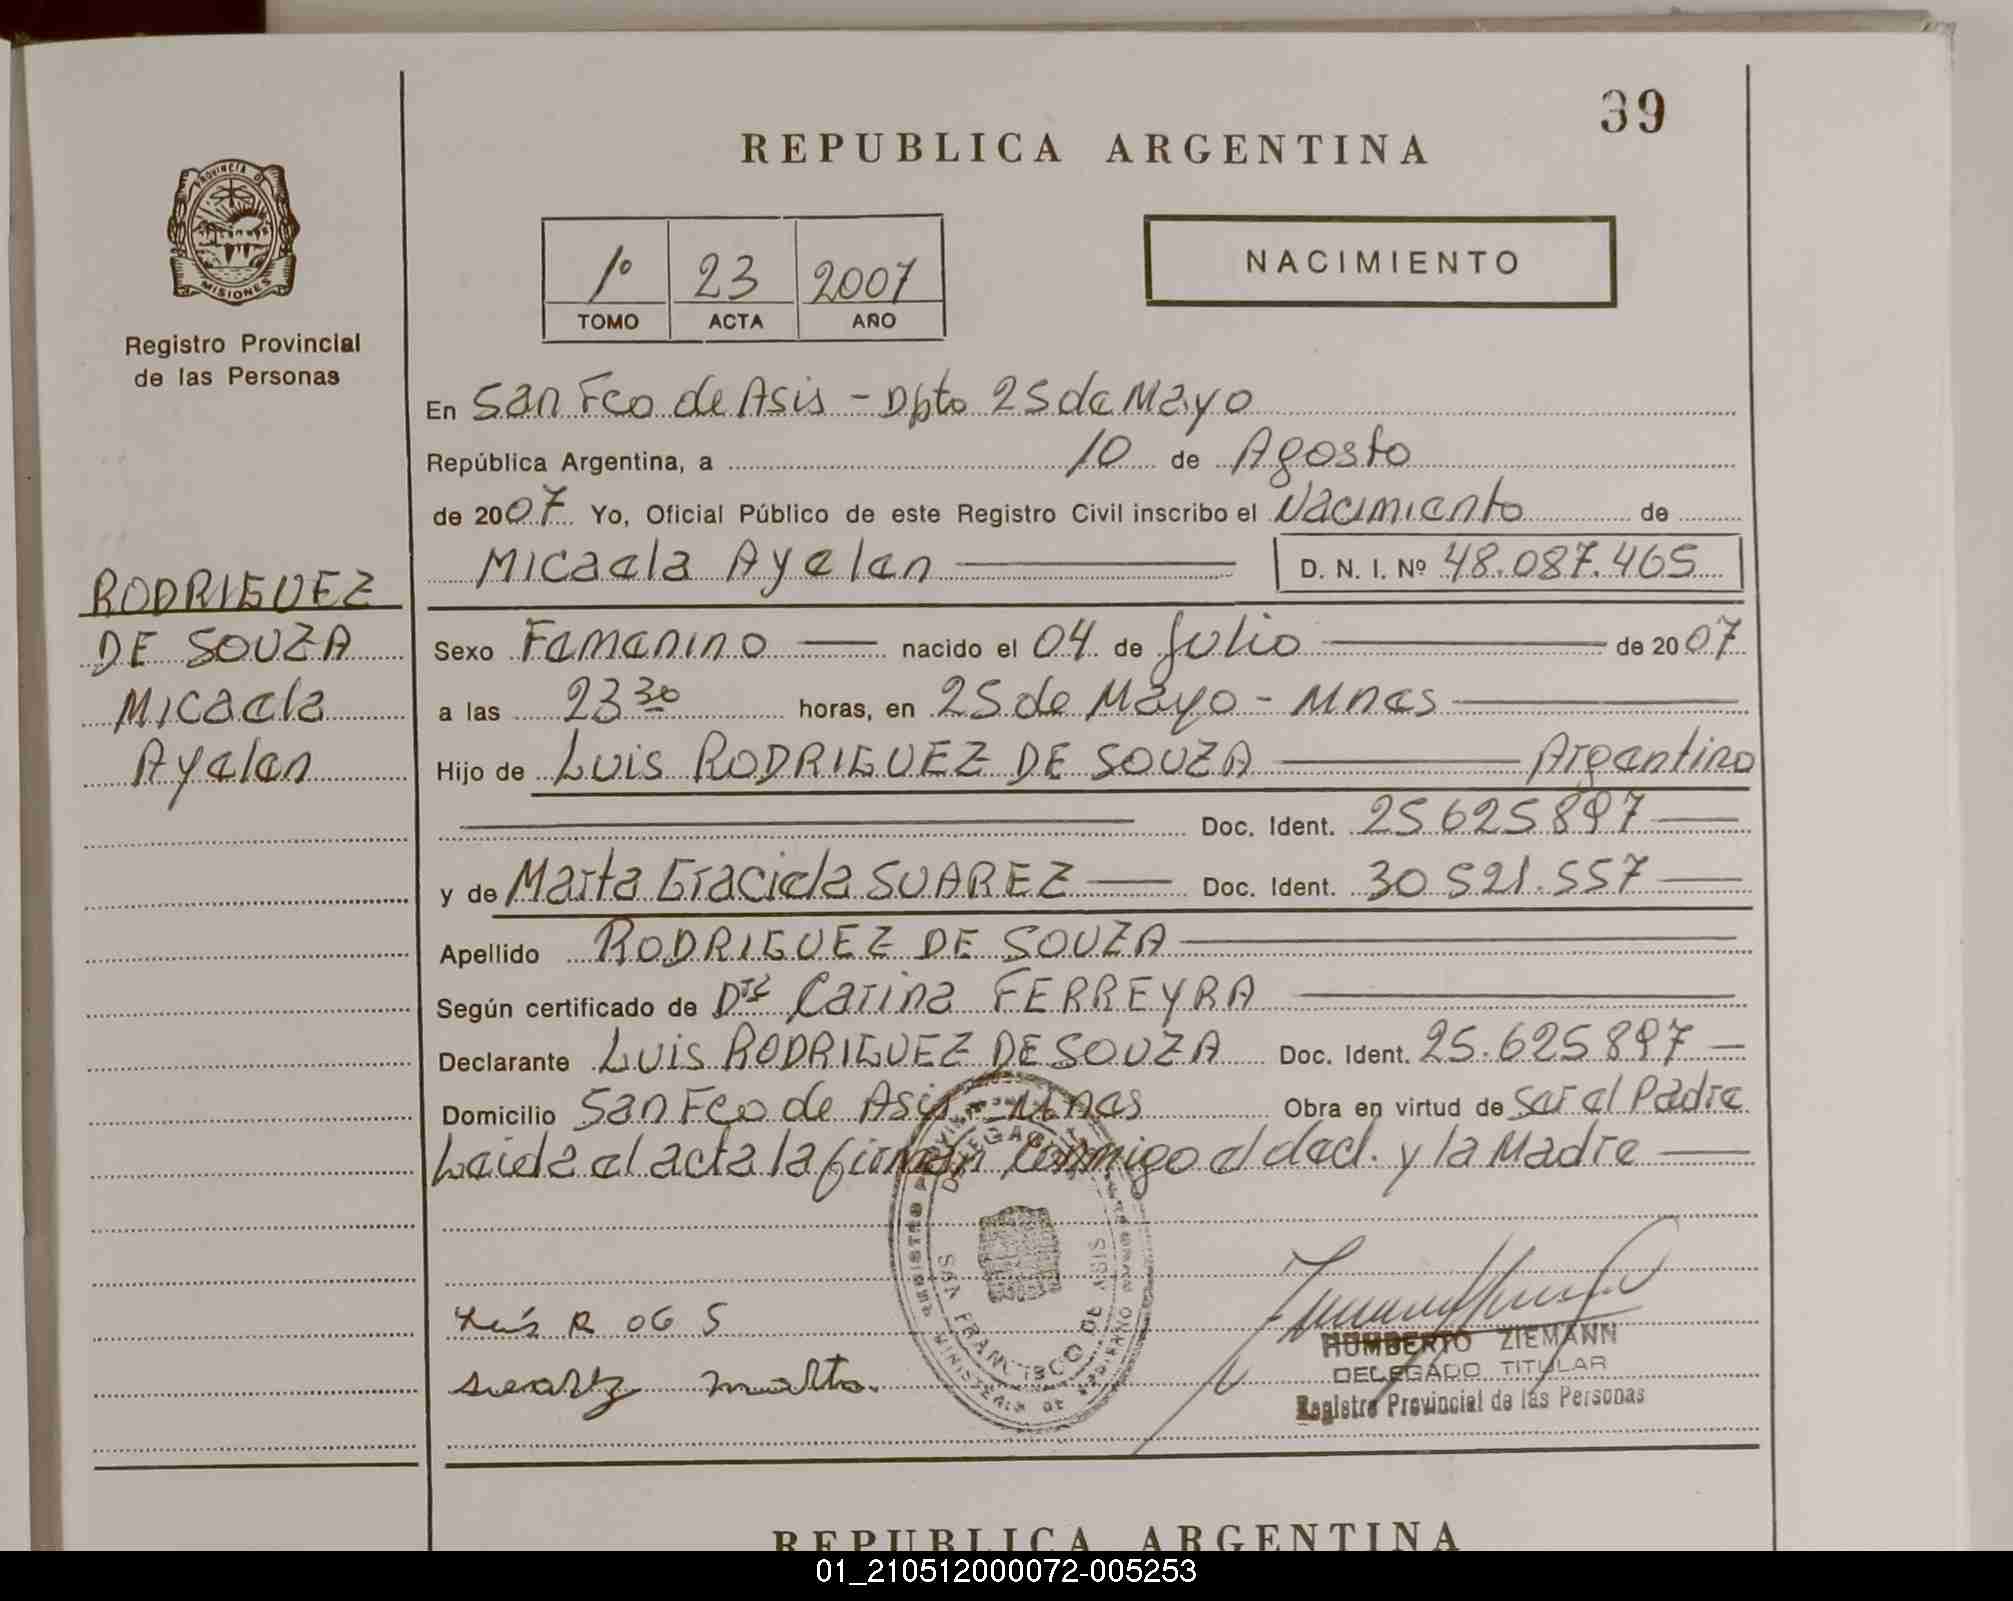 39
REPUBLICA ARGENTINA
PROVINCIA DE
MISIONES
Registro Provincial
de las Personas
1º 23 2007
TOMO ACTA AÑO
NACIMIENTO
En San Fco de Asis - Dpto 25 de Mayo
República Argentina, a 10 de Agosto
de 2007 Yo, Oficial Público de este Registro Civil inscribo el Nacimiento de
Micaela Ayelen D. N. I. Nº 48.087.465
RODRIGUEZ
DE SOUZA
Micaela
Ayelen
Sexo Femenino nacido el 04 de Julio de 2007
a las 23 30 horas, en 25 de Mayo - Mnes
Hijo de Luis RODRIGUEZ DE SOUZA Argentino
Doc. Ident. 25 625 897
y de Marta Graciela SUAREZ Doc. Ident. 30 521.557
Apellido RODRIGUEZ DE SOUZA
Según certificado de Dra Carina FERREYRA
Declarante Luis RODRIGUEZ DE SOUZA Doc. Ident. 25.625 897
Domicilio San Fco de Asis - Mnes Obra en virtud de ser el Padre
Leida el acta la firman conmigo el decl. y la Madre
SAN FRANCISCO DE ASIS
MINISTERIO DE GOBIERNO
Luis R DG S
suarez marta.
HUMBERTO ZIEMANN
DELEGADO TITULAR
Registro Provincial de las Personas
REPUBLICA ARGENTINA
01_210512000072-005253